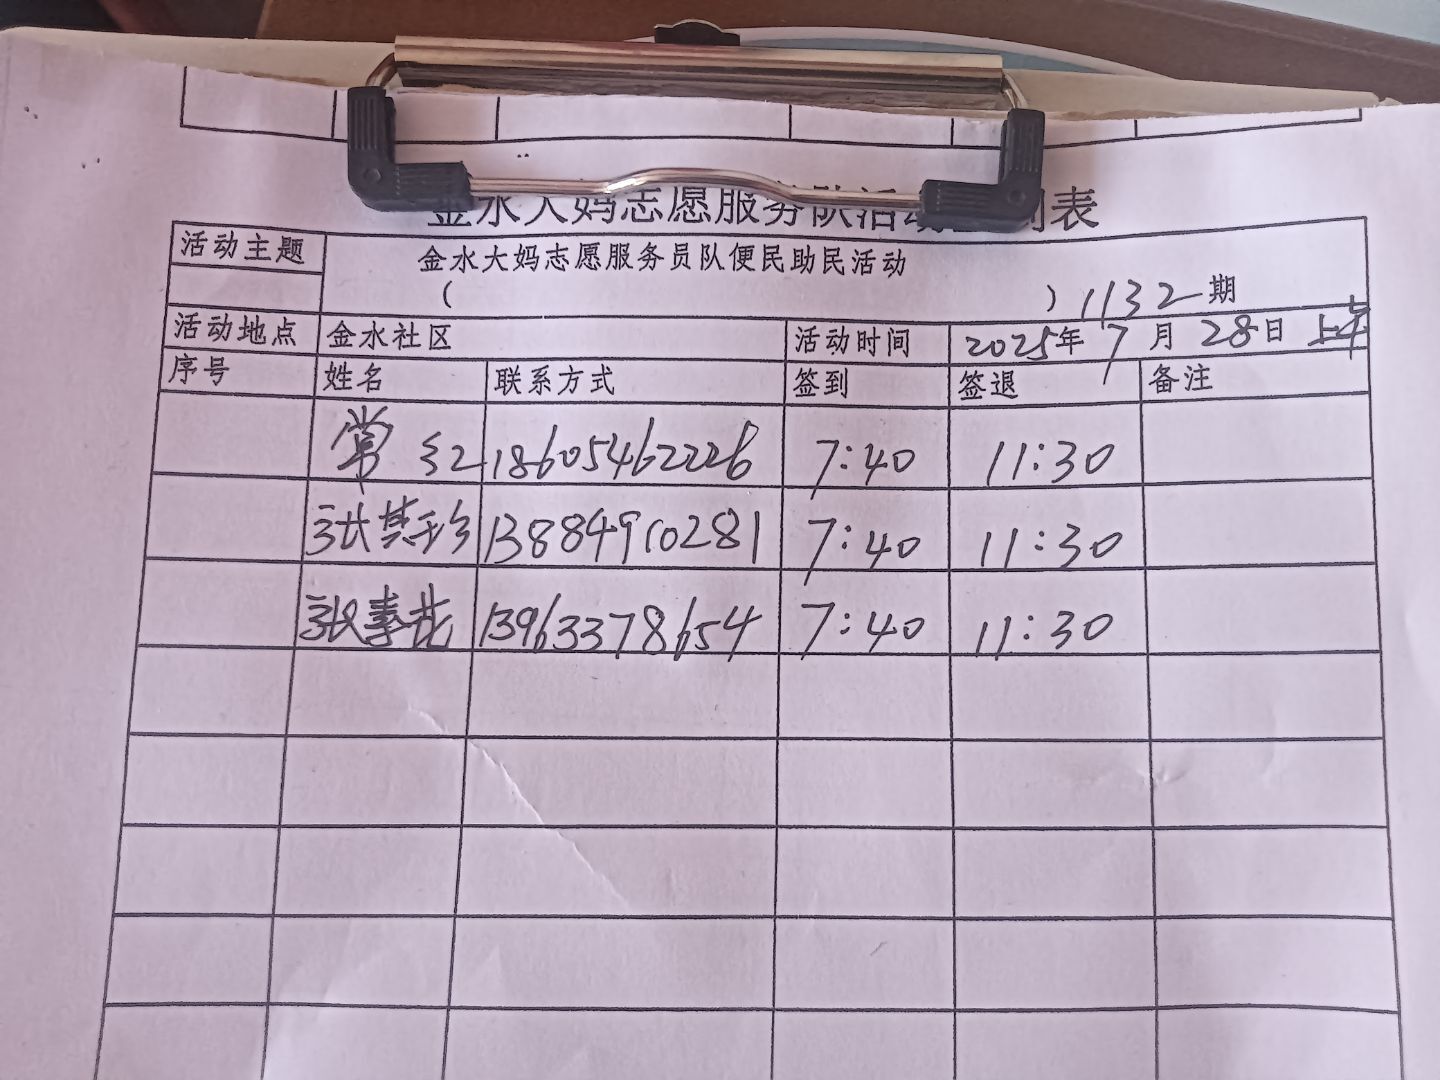 金水大妈志愿服务队活动签到表
活动主题 金水大妈志愿服务员队便民助民活动
( ) 1132期
活动地点 金水社区 活动时间 2025年7月28日 上午
序号 姓名 联系方式 签到 签退 备注
常红 18605462226 7:40 11:30
张其珍 13884910281 7:40 11:30
张素花 13963378654 7:40 11:30